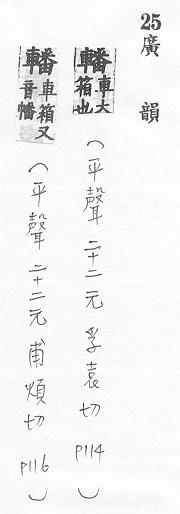 25廣韻
轓車大箱也(平聲二十二元孚袁切 P114)
轓車箱又音幡(平聲二十二元甫煩切 P116)